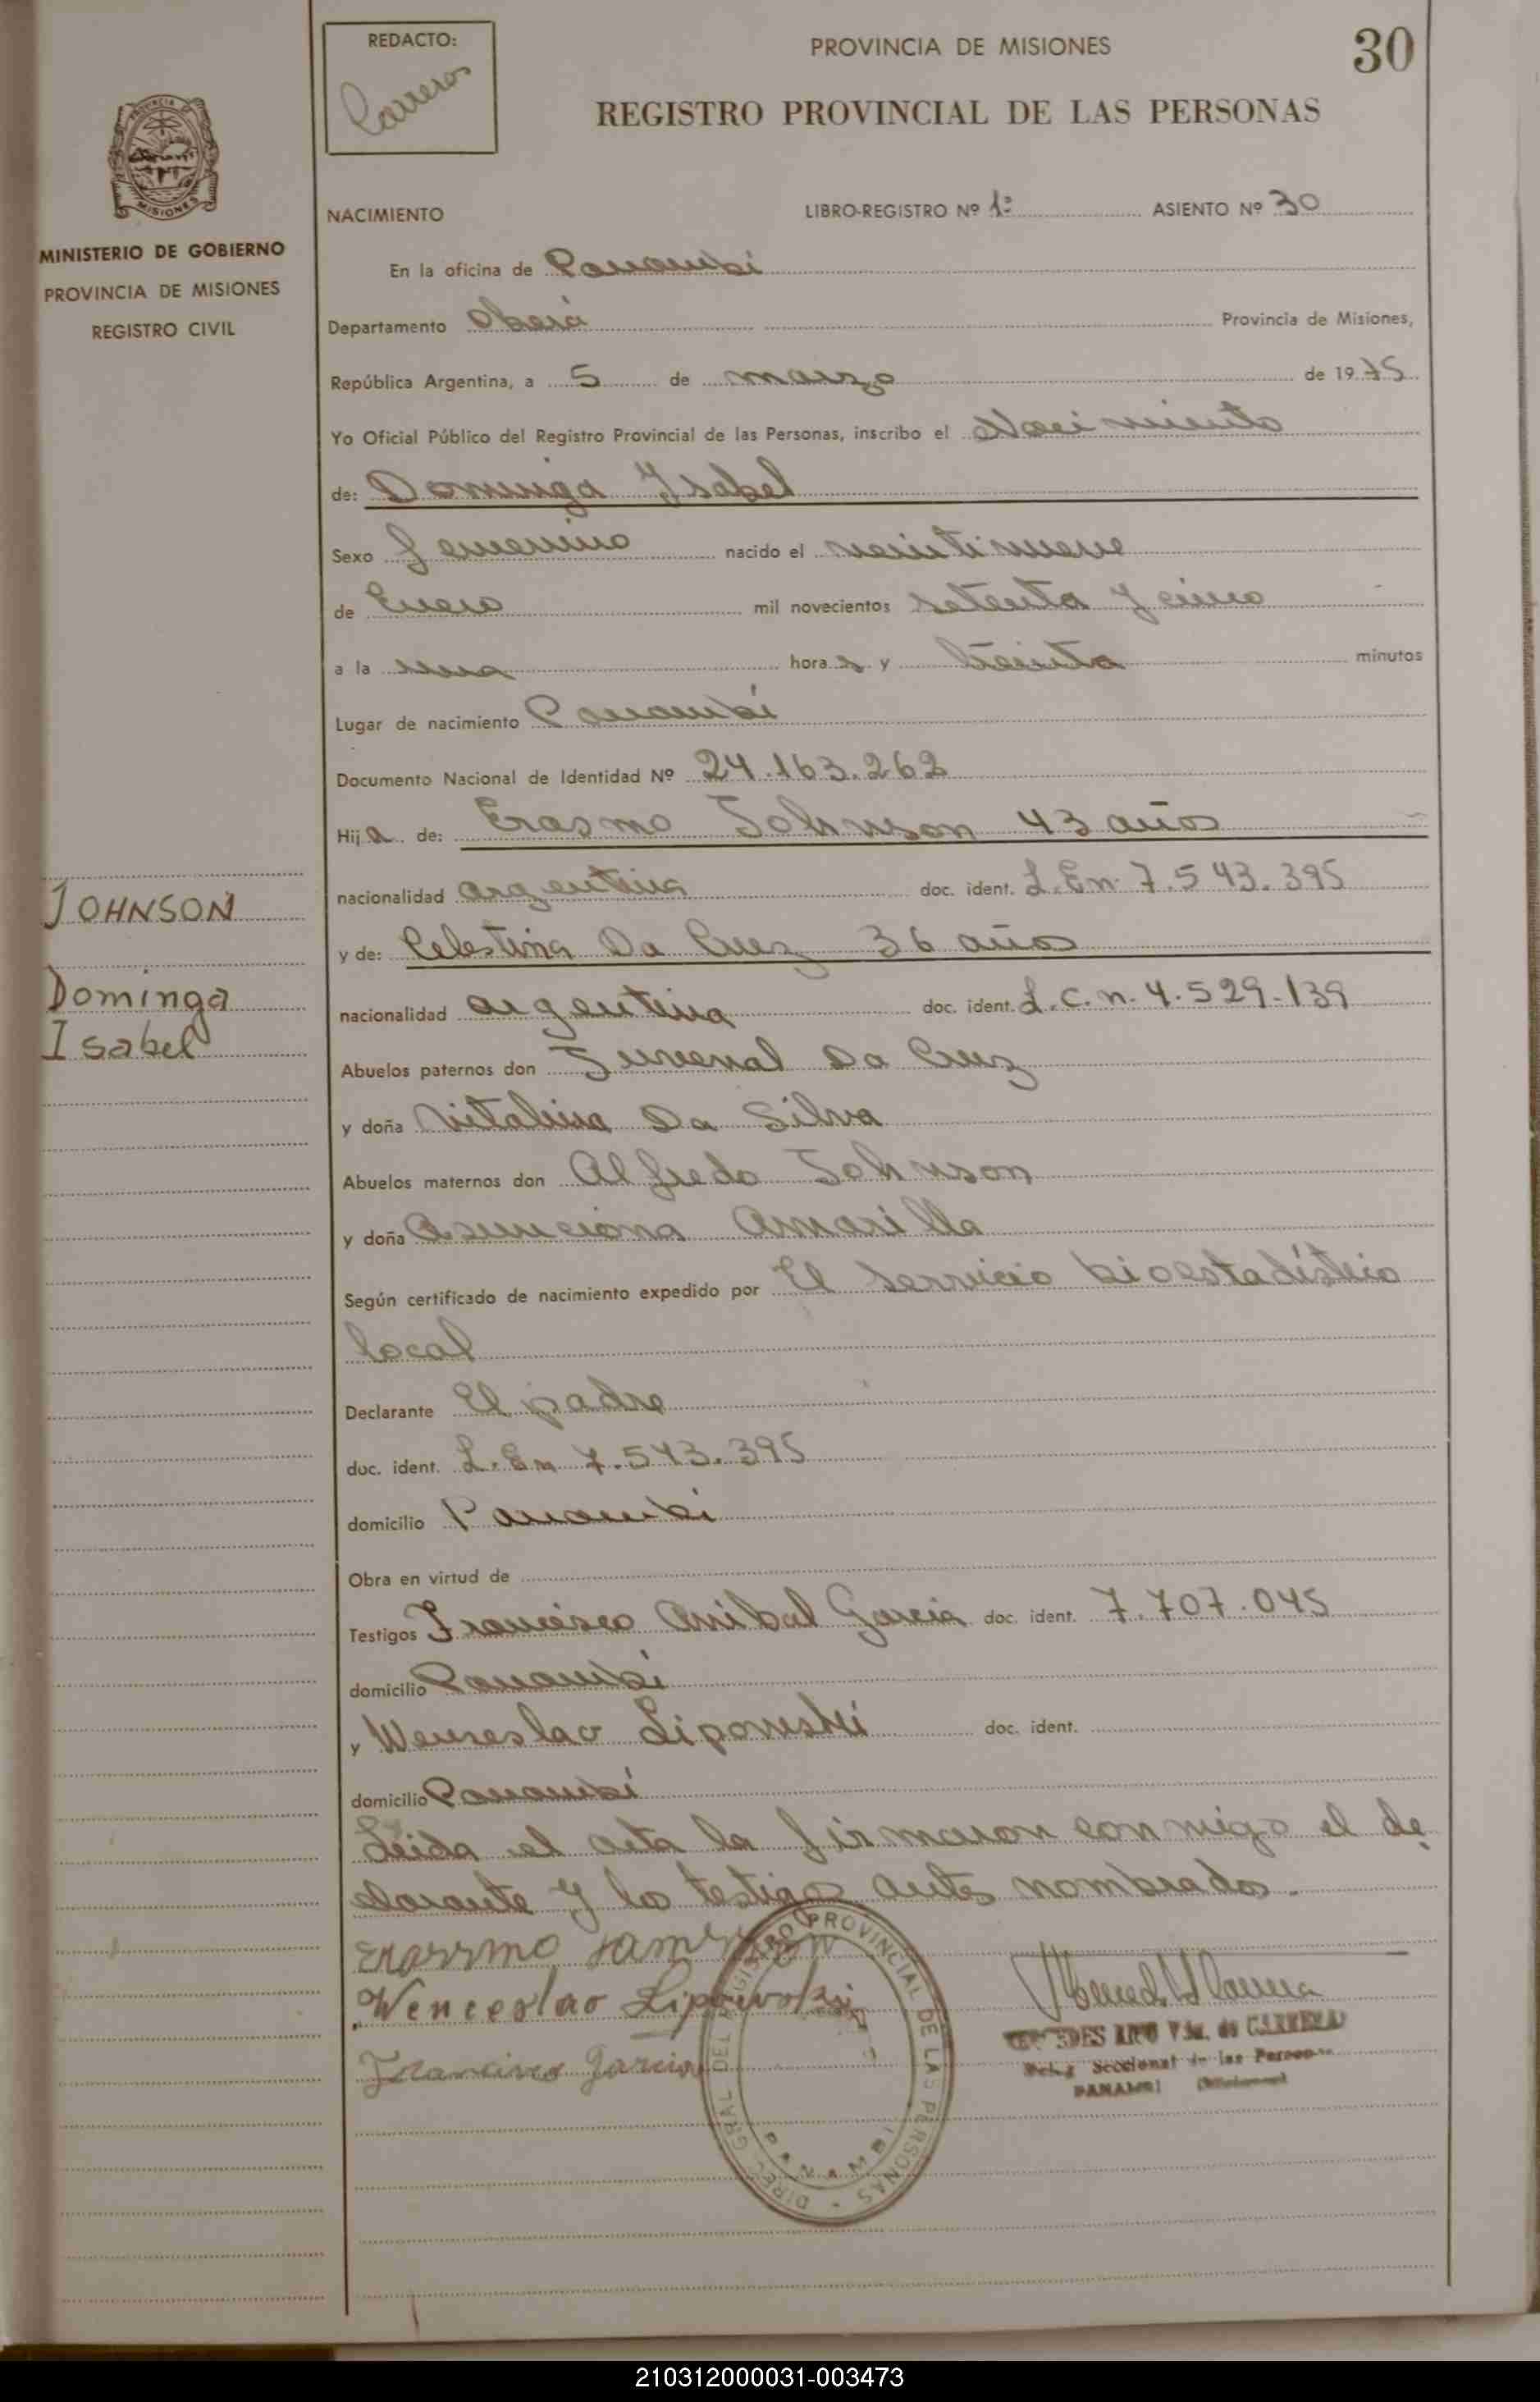 REDACTO:
Carreras
PROVINCIA DE MISIONES
30
REGISTRO PROVINCIAL DE LAS PERSONAS
PROVINCIA DE MISIONES
MINISTERIO DE GOBIERNO
PROVINCIA DE MISIONES
REGISTRO CIVIL
NACIMIENTO LIBRO-REGISTRO Nº 1º ASIENTO Nº 30
En la oficina de Panambí
Departamento Oberá Provincia de Misiones,
República Argentina, a 5 de marzo de 1975
Yo Oficial Público del Registro Provincial de las Personas, inscribo el Nacimiento
de: Dominga Ysabel
Sexo Femenino nacido el veintinueve
de Enero mil novecientos setenta y cinco
a la una horas y treinta minutos
Lugar de nacimiento Panambí
Documento Nacional de Identidad Nº 24.163.262
Hija de: Erasmo Johnson 43 años
nacionalidad argentina doc. ident. L.En. 7.543.395
y de: Celestina Da Cruz 36 años
nacionalidad argentina doc. ident. L.C.n. 4.529-139
JOHNSON
Dominga
Isabel
Abuelos paternos don Juvenal Da Cruz
y doña Vitalina Da Silva
Abuelos maternos don Alfredo Johnson
y doña Asunciona Amarilla
Según certificado de nacimiento expedido por El Servicio bioestadístico
local
Declarante El padre
doc. ident. L.En 7.543.395
domicilio Panambí
Obra en virtud de
Testigos Francisco Anibal Garcia doc. ident. 7.707.045
domicilio Panambí
y Wenseslao Lipowski doc. ident.
domicilio Panambí
Leida el acta la firmaron conmigo el de
clarante y los testigos antes nombrados.
Erassmo
Wenceslao Lipowski
Francisco Garcia
DIREC. GRAL DEL REGISTRO PROVINCIAL DE LAS PERSONAS
PANAMBI
Vda. de CARRERA
Seccional de las Personas
PANAMBI (Misiones)
210312000031-003473